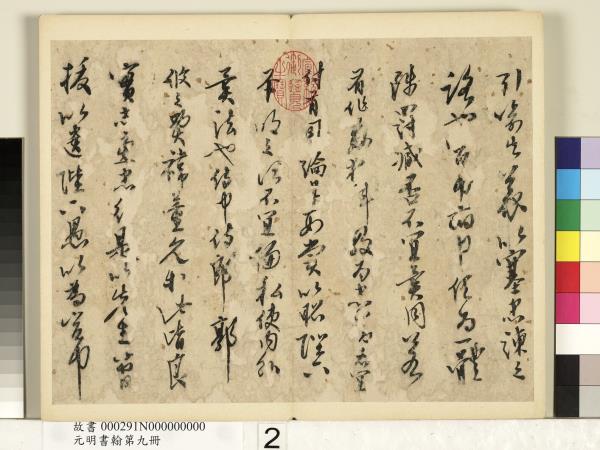 引喻失義以塞忠諫之
路也宮中府中俱為一體
陟罰臧否不宜異同若
有作姦犯科及為忠善者宜
付有司論其刑賞以昭陛下
平明之治不宜偏私使內外
異法也侍中侍郎郭
攸之費禕董允等此皆良
實志慮忠純是以先帝簡
拔以遺陛下愚以為宮中
故書 000291N000000000
元明書翰第九冊
2